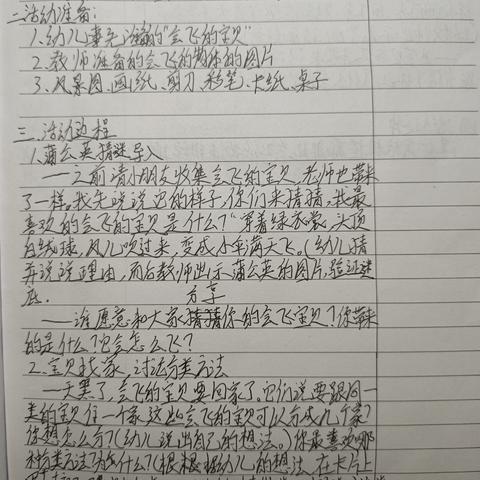 二.活动准备:
1.幼儿事先准备的“会飞的宝贝”
2.教师准备的会飞的物体的图片
3.风景图、画纸、剪刀、彩笔、卡纸、桌子
三.活动过程
1.蒲公英猜谜导入
——之前请小朋友收集会飞的宝贝,老师也带来
了一样,我先说说它的样子,你们来猜猜,我最
喜欢的会飞的宝贝是什么?“穿着绿衣裳,头顶
白绒球,风儿吹过来,变成小伞满天飞。(幼儿猜
并说说理由,而后教师出示蒲公英的图片,验证谜
底。
分享
——谁愿意和大家猜猜你的会飞宝贝?你带来
的是什么?它会怎么飞?
2.宝贝找家,讨论分类方法
——天黑了,会飞的宝贝要回家了。它们说要跟同一
类的宝贝住一个家,这些会飞的宝贝可以分成几个家?
你想怎么分?(幼儿说出自己的想法。)你最喜欢哪
种分类方法?为什么?(根根据幼儿的想法,在卡片上